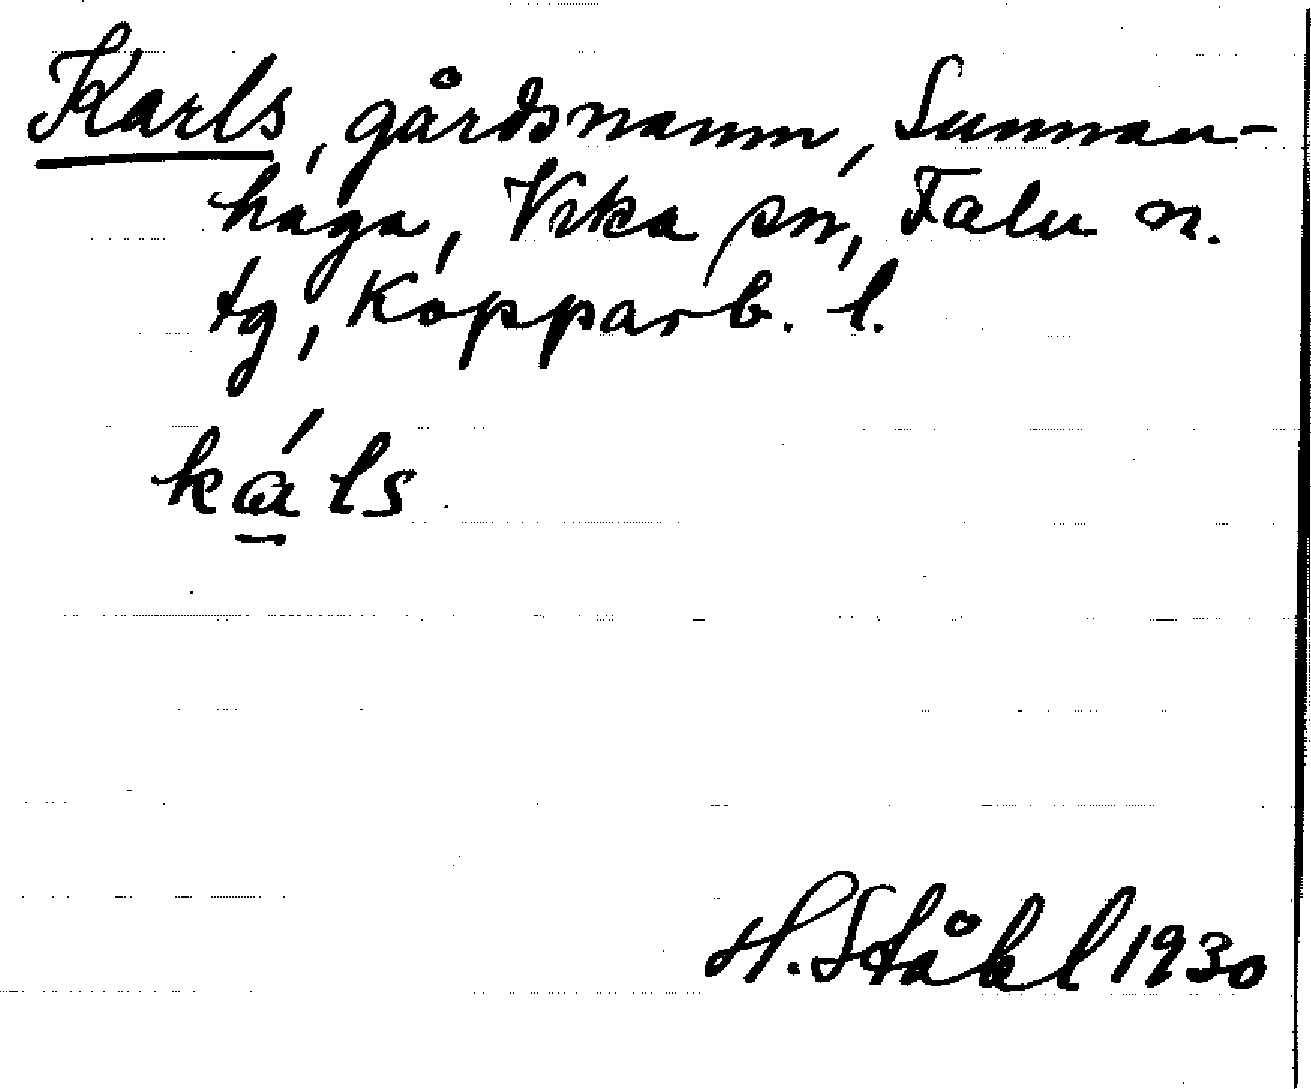 Karls, gårdsnamn, Sunnan-
haga, Vika sn, Falu n.
tg, Kopparb. l.
káls
H. Ståhl 1930